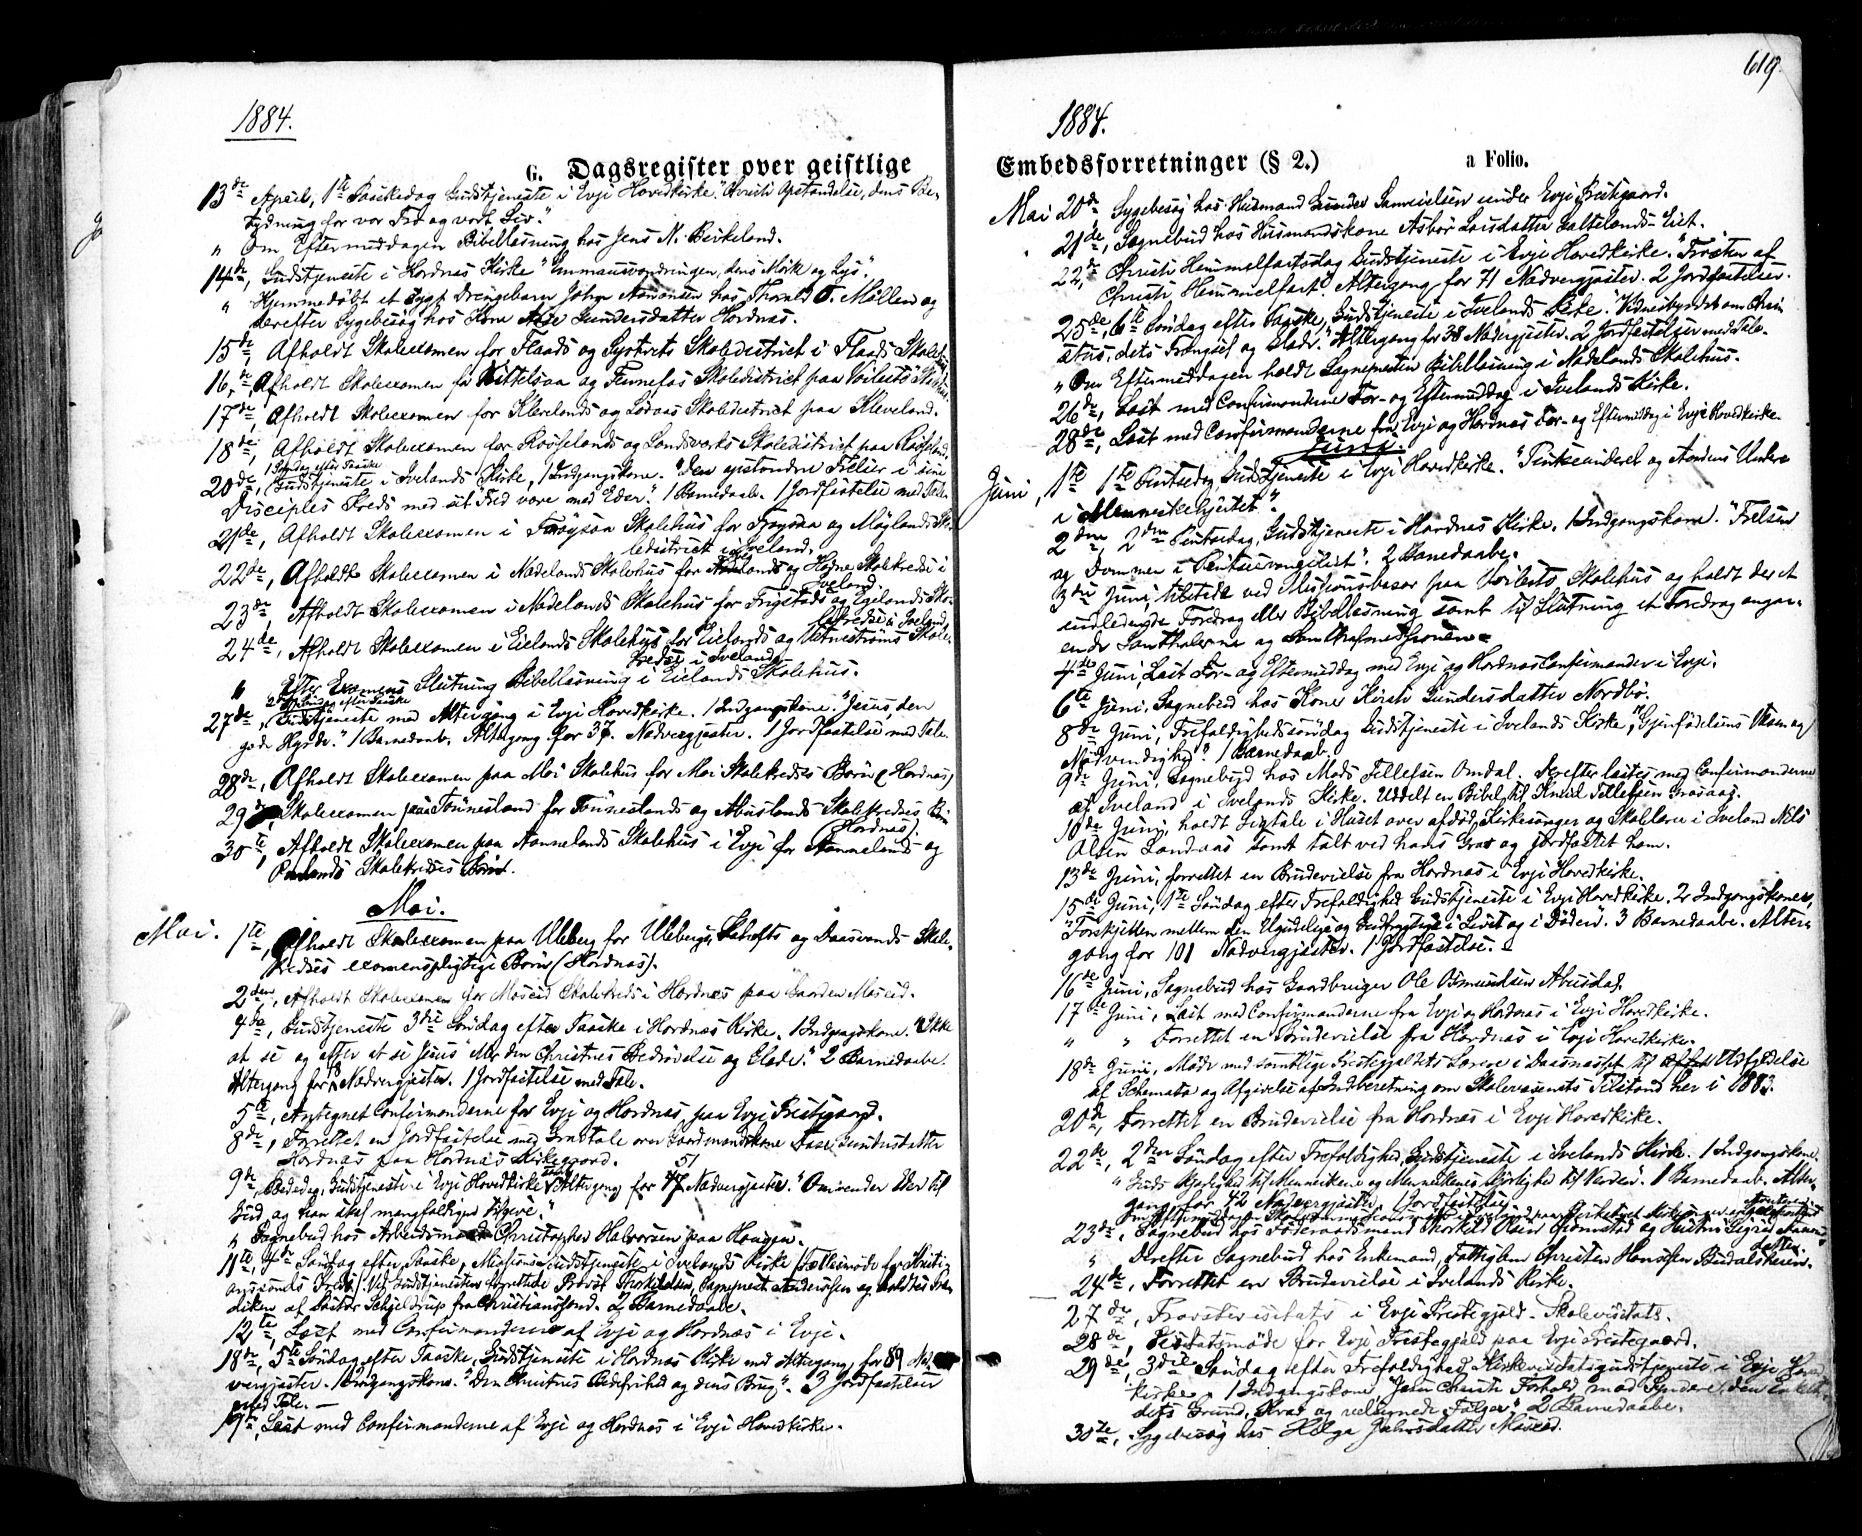 619.
1884.
G. Dagsregister over geistlige
13de April, 1ste Paaskedag Gudstjeneste i Evje Hovedkirke. "Christi Opstandelse, dens Be-
tydning for vor Tro og vort Liv."
" Om Eftermiddagen Bibellæsning hos Jens N. Birkeland.
14de, Gudstjeneste i Hordnæs Kirke "Emmausvandringen, dens Mörke og Lys".
" Hjemmedöbt et sygt Drengebarn Johan Aamonsen hos Thorald O. Möllen og
derefter Sygebesög hos Kone Gundersdatter Hordnæs.
15de, Afholdt Skoleexamen for Flaads og Skoledistrict i Flaads Skolehus
16de, Afholdt Skoleexamen for Kittelsaa og Fennefos Skoledistrict paa Voilests Skolehus.
17de, Afholdt Skoleexamen for Klevelands og Lödaas Skoledistrict paa Kleveland.
18de, Afholdt Skoleexamen for Rosselands og Landsverks Skoledistrict paa Rosseland.
1 Söndag efter Paaske
20de, Gudstjeneste i Ivelands Kirke, 1 Indgangskone. "Den opstandne Frelser i sine
Disciples Kreds med sit "Fred være med Eder". 1 Barnedaab. 1 Jordfæstelse med Tale.
21de, Afholdt Skoleexamen i Fröysaa Skolehus for Fröysaa og Möglands Sko-
ledistrict i Iveland.
22de, Afholdt Skoleexamen i Nadelands Skolehus for og Hogne Skolekredse i
Iveland.
23de, Afholdt Skoleexamen i Nadelands Skolehus for Frigstads og Egelands Sko-
lekredse i Iveland,
24de, Afholdt Skoleexamen i Eielands Skolehus for Eielands og Vatnestrøms Skole-
kredse i Iveland.
" Efter Examens Slutning Bibellæsning i Eielands Skolehus.
2 Söndag efter Paaske
27de, Gudstjeneste med Altergang i Evje Hovedkirke. 1 Indgangskone. "Jesus, den
gode Hyrde." 1 Barnedaab. Altergang for 37 Nadvergjester. 1 Jordfæstelse med Tale.
28de, Afholdt Skoleexamen paa Moi Skolehus for Moi Skolekredses Börn (Hordnæs)
29de, Skoleexamen paa Tönnesland for Tönneslands og Abuslands Skolekredses Börn
(Hordnæs).
30te, Afholdt Skoleexamen paa Aamnelands Skolehus i Evje for Aamnelands og
Skolekredses Börn.
Mai.
Mai. 1ste, Afholdt Skoleexamen paa Uleberg for Ulebergs, og Daasvands Skole-
kredses examenspligtige Börn (Hordnæs).
2den, Afholdt Skoleexamen for Moseid Skolekreds i Hordnæs paa Gaarden Moseid.
4de, Gudstjeneste 3die Söndag efter Paaske i Hordnæs Kirke. 1 Indgangskone. "Ikke
at se og efter at se Jesus" eller den Christnes Bedrövelse og Glæde." 2 Barnedaabe.
Altergang for 18 Nadvergjester. 1 Jordfæstelse med Tale.
5te, Antegnet Confirmanderne for Evje og Hordnæs paa Evje Prestegaard.
8de, Forrettet en Jordfæstelse med Gravtale over Gaardmandskone Gundersdatter
Hordnæs paa Hordnæs Kirkegaard.
51
9de, Bededag, Gudstjeneste i Evje Hovedkirke Altergang for Nadvergjester. "Omvender Eder til
Gud, og han skal mangfoldigen tilgive."
" Sognebud hos Arbeidsmand Christopher Halvorsen paa Haugen.
11te, 4de Söndag efter Paaske, Missionsgudstjeneste i Ivelands Kirke (Fællesmöde for Kristi-
anssands Kreds). Ved Gudstjenesten forrettede Provst Thorkildsen, Sognepræst Andersen og holdtes Præ-
diken af Pastor Schjelderup fra Christianssand. 2 Barnedaabe.
12te, Læst med Confirmanderne af Evje og Hordnæs i Evje.
18de, 5te Söndag efter Paaske, Gudstjeneste i Hordnæs Kirke med Altergang, for 89 Nad-
vergjester. 1 Indgangskone. "Den Christnes Bedefrihed og dens Brug". 3 Jordfæstelser
med Tale. —
19de, Læst med Confirmanderne af Evje og Hordnæs i Evje Hovedkirke.
1884.
Embedsforretninger (§ 2.) a Folio.
Mai 20de, Sygebesög hos Husmand Gunder Samuelsen under Evje Prestegaard.
21de, Sognebud hos Husmandskone Asbör Larsdatter Galtelands-Eiet.
22de, Christi Himmelfartsdag Gudstjeneste i Evje Hovedkirke. "Frugten af
Christi Himmelfart". Altergang for 71 Nadvergjester. 2 Jordfæstelser.
25de, 6te Söndag efter Paaske, Gudstjeneste i Ivelands Kirke. "Vidnesbyrdet om Chri-
stus, dets Trængsel og Glæde." Altergang for 38 Nadvergjester. 2 Jordfæstelser med Tale.
" Om Eftermiddagen holdt Sognepresten Bibellæsning i Nadelands Skolehus.
26de, Læst med Confirmanderne For- og Eftermiddag i Ivelands Kirke.
28de, Læst med Confirmanderne fra Evje og Hordnæs For- og Eftermiddag i Evje Hovedkirke.
Juni.
Juni, 1ste 1ste Pintsedag Gudstjeneste i Evje Hovedkirke. "Pintseunderet og Aandens Under
i Menneskehjertet".
2den, 2den Pintsedag, Gudstjeneste i Hordnæs Kirke. 1 Indgangskone. "Frelsen
og Dommen i Pintseevangeliet". 2 Barnedaabe.
3die Juni, tilstede ved Missionsbasar paa Voilests Skolehus og holdt der et
indledende Foredrag eller Bibellæsning samt til Slutning et Foredrag angaa-
ende Santhalerne og Santhalmissionen.
4de Juni, Læst For- og Eftermiddag med Evje og Hordnæs Confirmander i Evje.
6te Juni, Sognebud hos Kone Gundersdatter Nordbö.
8de Juni, Trefoldighedssöndag Gudstjeneste i Ivelands Kirke, "Gjenfödelsens Væsen og
Nödvendighed". 1 Barnedaab.
9de Juni, Sognebud hos Mads Tellefsen Omdal. Derefter læstes med Confirmanderne
af Iveland i Ivelands Kirke. Uddelt en Bibel til Knud Tellefsen Graasaas.
10de Juni, holdt Ligtale i Huset over afdöd Kirkesanger og Skolelærer i Iveland Nils
Olsen Landaas samt talt ved hans Grav og jordfæstet ham.
13de Juni, forrettet en Brudevielse fra Hordnæs i Evje Hovedkirke.
15de Juni, 1ste Söndag efter Trefoldighed Gudstjeneste i Evje Hovedkirke. 2 Indgangskoner,
"Forskjellen mellem den Ugudelige og Gudfrygtige i Livet og i Döden". 3 Barnedaabe. Alter-
gang for 101 Nadvergjester. 1 Jordfæstelse.
16de Juni, Sognebud hos Gaardbruger Ole Osmundsen Abusdal.
17de Juni, Læst med Confirmanderne fra Evje og Hordnæs i Evje Hovedkirke.
" " Forrettet en Brudevielse fra Hordnæs i Evje Hovedkirke.
18de Juni, Möde med samtlige Prestegjeldets Lærere i Daasnæsset til Udfyldelse
af Schemata og Afgivelse af Indberetning om Skolevæsenets Tilstand her i 1883.
20de, Forrettet en Brudevielse fra Hordnæs i Evje Hovedkirke.
22de, 2den Söndag efter Trefoldighed, Gudstjeneste i Ivelands Kirke. 1 Indgangskone.
"Guds Kjærlighed til Menneskene og Menneskenes Kjærlighed til Verden". 1 Barnedaab. Alter-
gang for 42 Nadvergjester. 1 Jordfæstelse.
23de, Sognebud hos Föderaadsmand Thorkel Olsen og Hustru Sigrid Aamunds-
datter.
" Derefter Sognebud hos Enkemand, Fattiglem Christen Hansen
24de, Forrettet en Brudevielse i Ivelands Kirke.
27de, Provstevisitats i Evje Prestegjeld. Skolevisitats.
28de, Visitatsmöde for Evje Prestegjeld paa Evje Prestegaard.
29de, 3die Söndag efter Trefoldighed Kirkevisitatsgudstjeneste i Evje Hoved-
kirke. 1 Indgangskone, "Jesu Christi Forhold mod Syndere, den Enkelte
dets Grund, Krav og velsignede Fölger". 2 Barnedaabe.
30te, Sygebesög hos Helga Jahrsdatter Moseid.